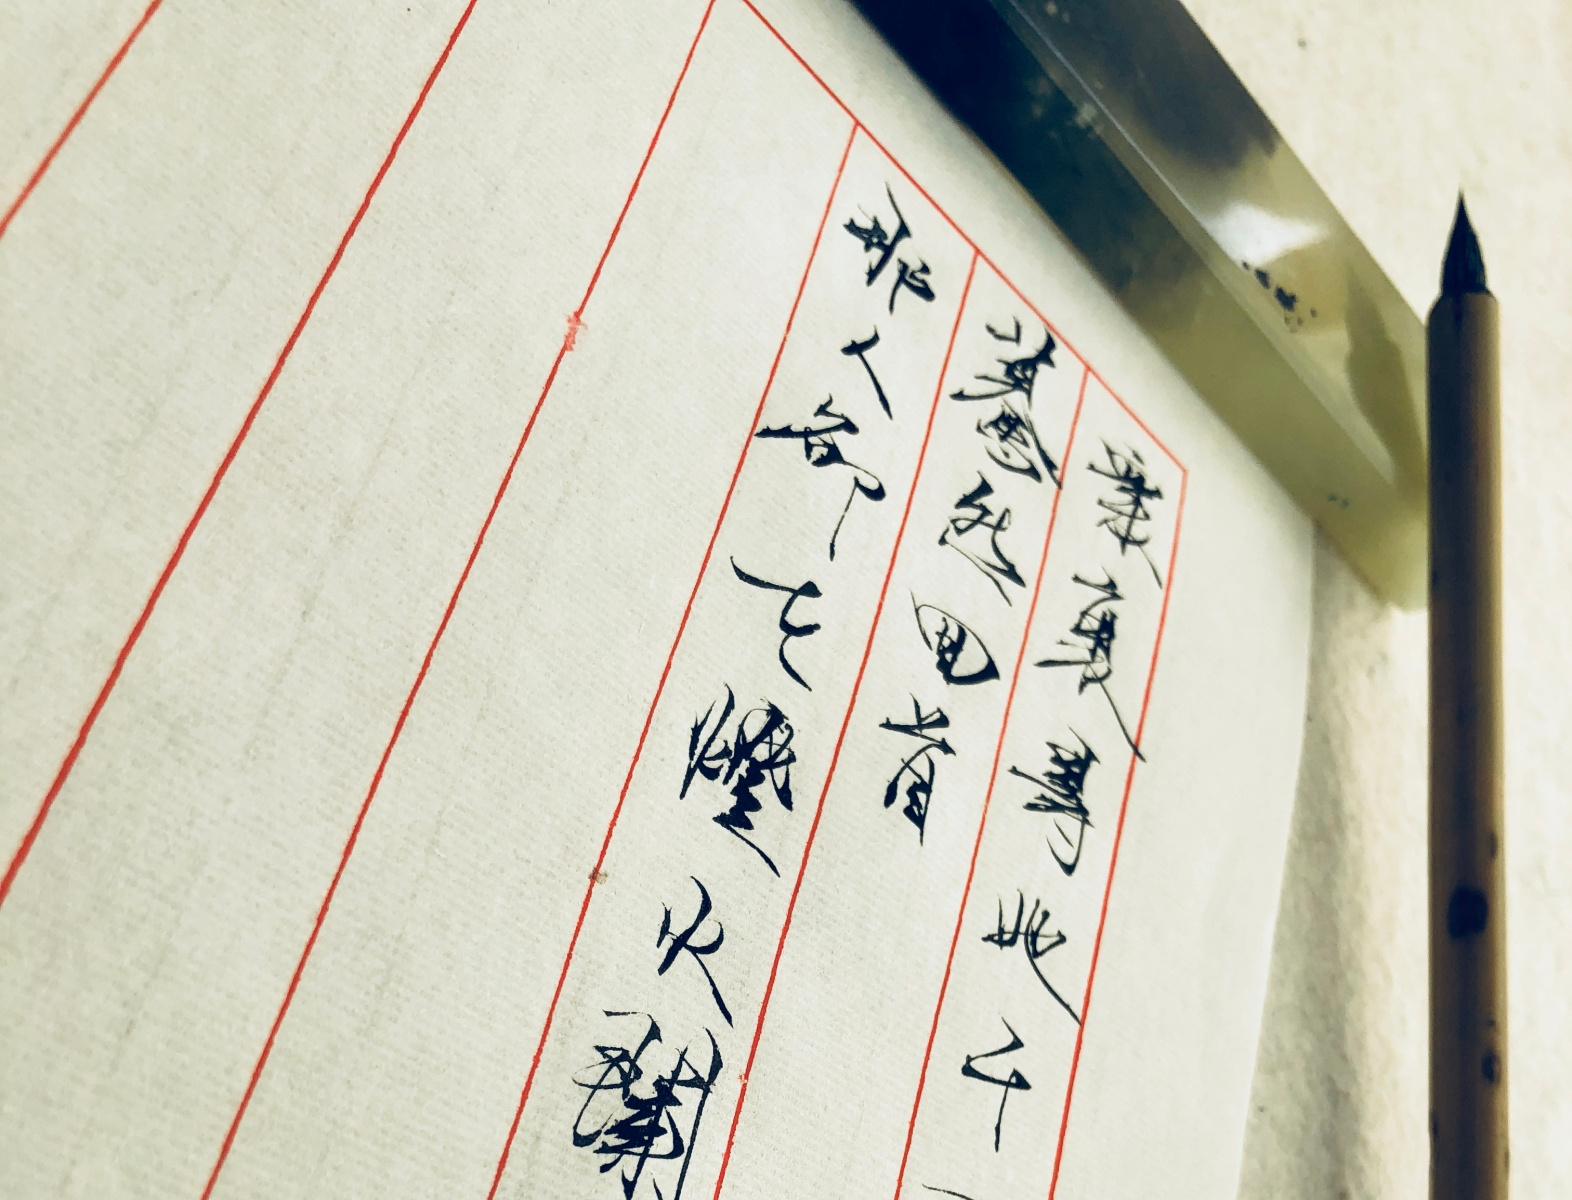 眾裏尋他千
驀然回首
那人卻在燈火闌